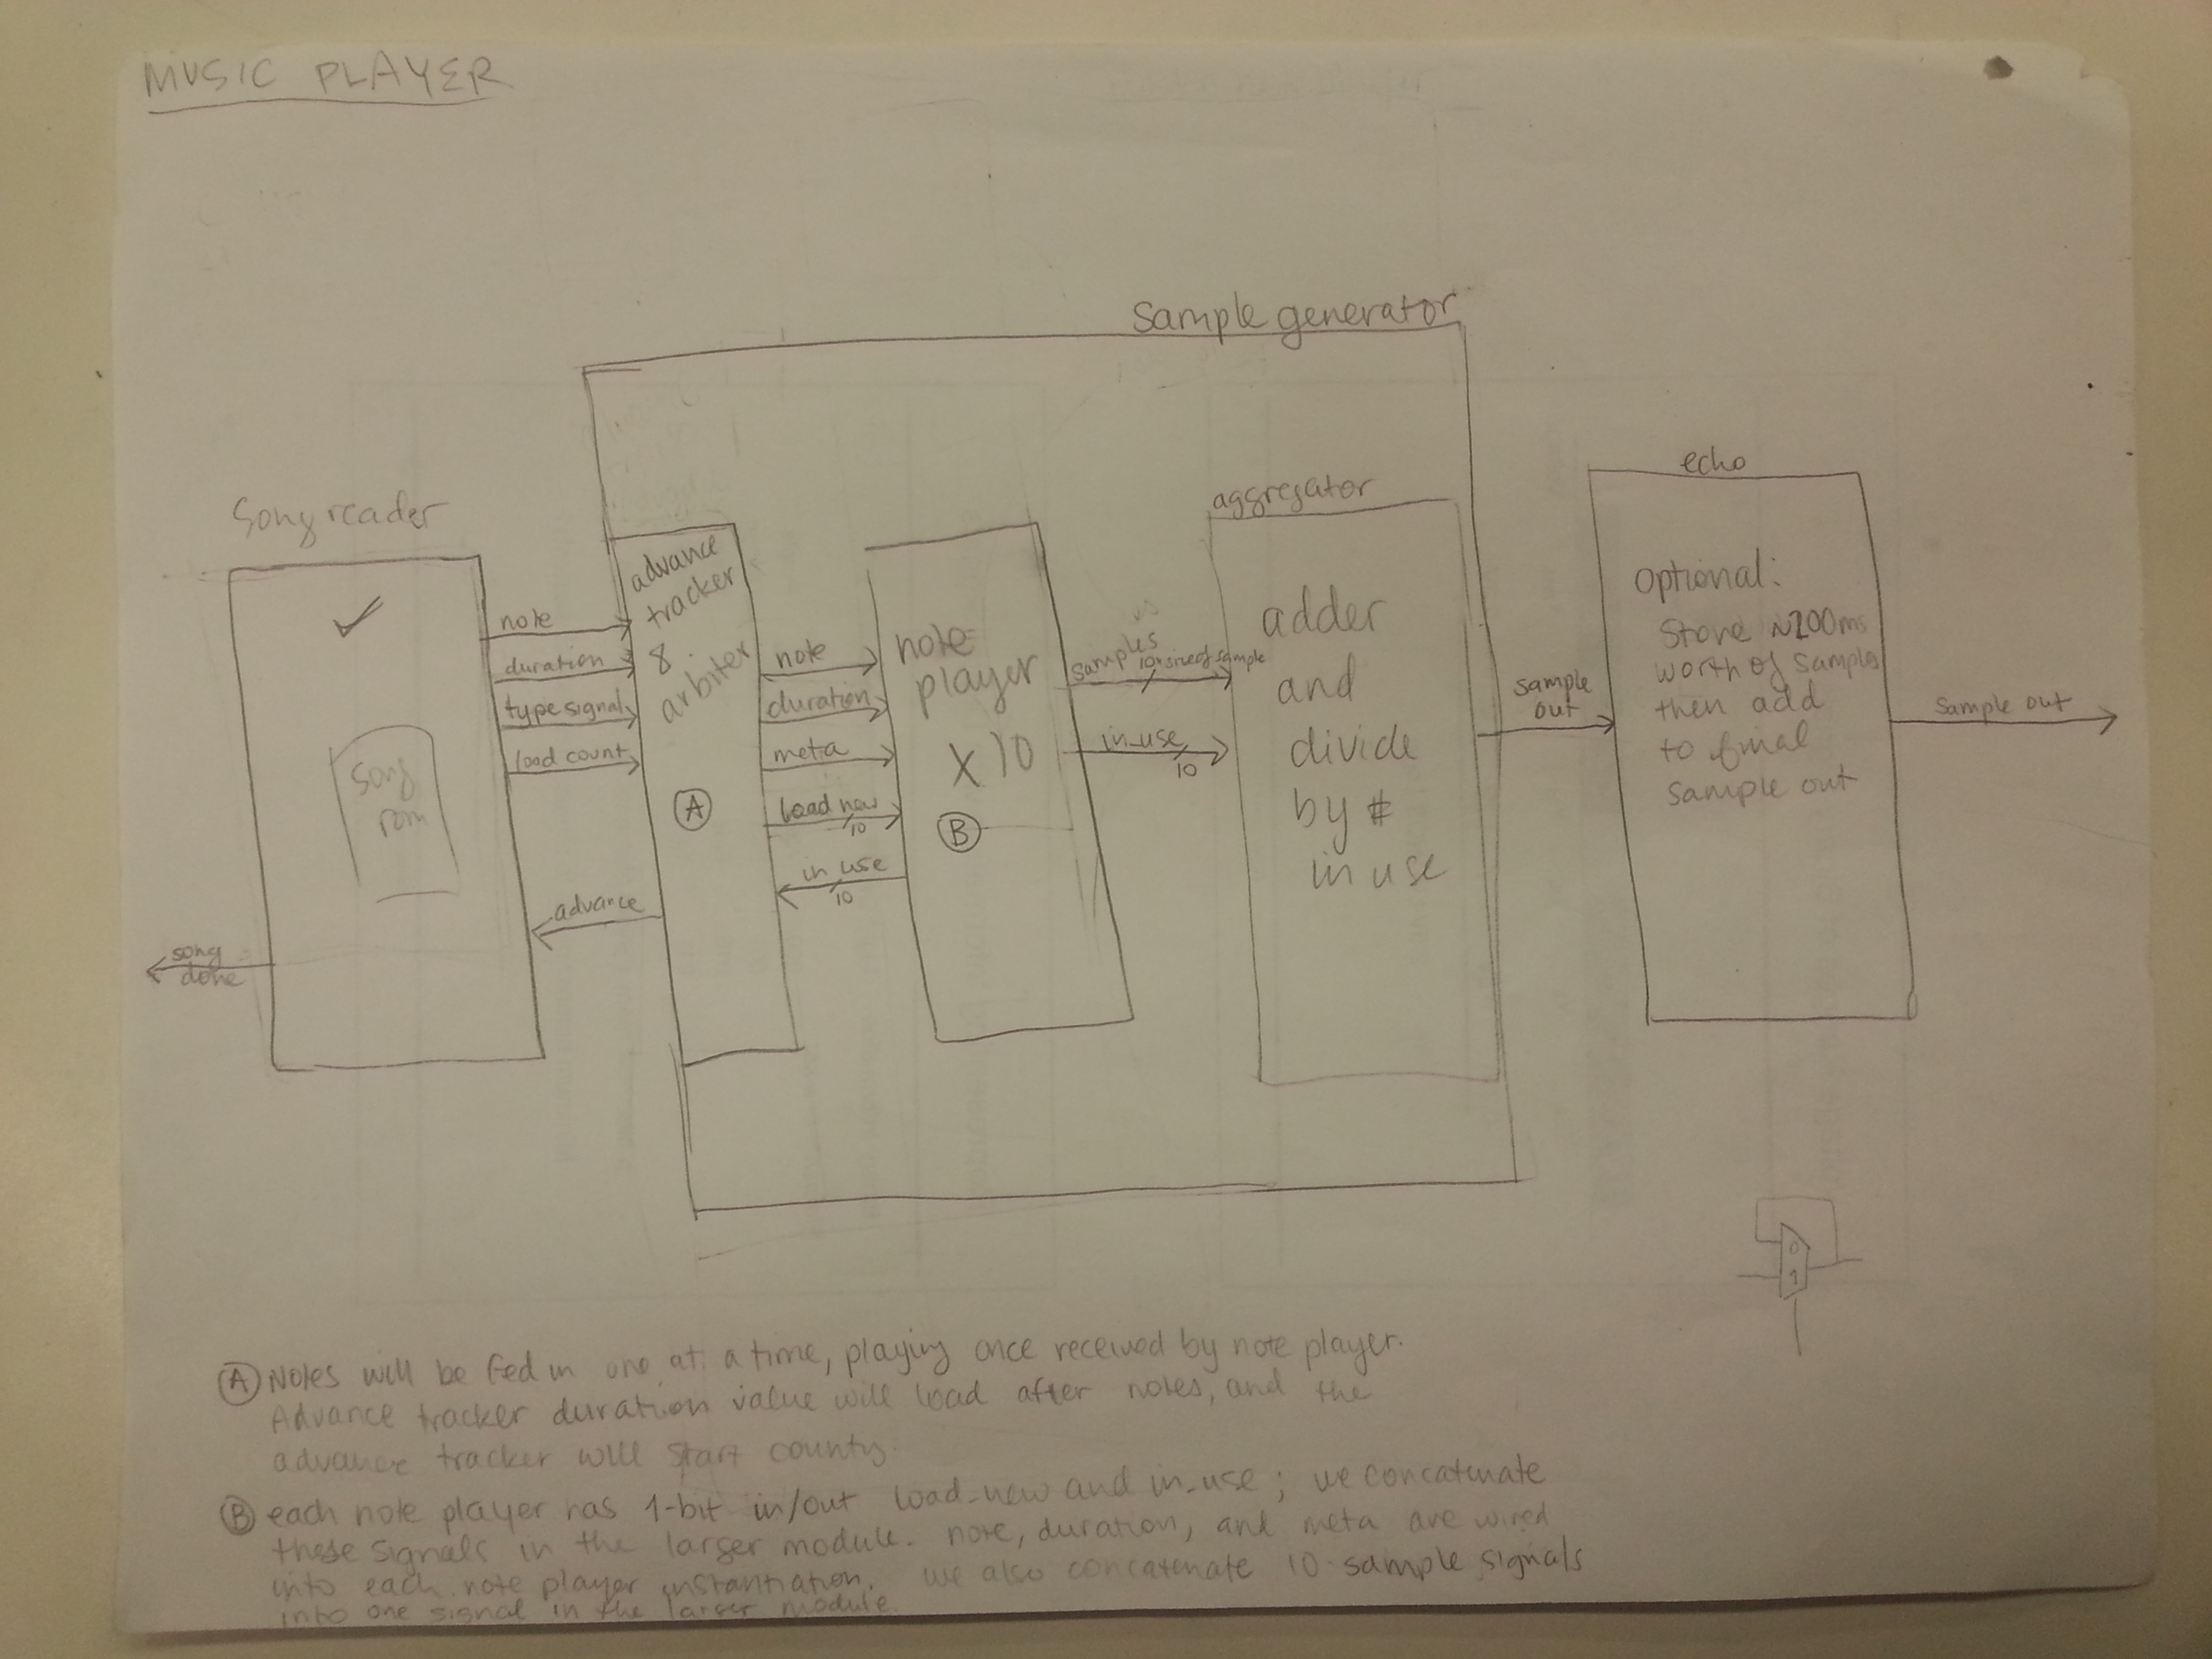 MUSIC PLAYER
Sample generator
Song reader
song
rom
song
done
note
duration
type signal
load count
advance
advance
tracker
&
arbiter
A
note
duration
meta
load new
10
in use
10
note
player
x10
B
samples
10*size of sample
in_use
10
aggregator
adder
and
divide
by #
in use
sample
out
echo
Optional:
Store ~200ms
worth of samples
then add
to final
sample out
Sample out
0
1
A Notes will be fed in one at a time, playing once received by note player.
Advance tracker duration value will load after notes, and the
advance tracker will start counting.
B each note player has 1-bit in/out load_new and in_use; we concatenate
these signals in the larger module. note, duration, and meta are wired
into each note player instantiation. we also concatenate 10 sample signals
into one signal in the larger module.